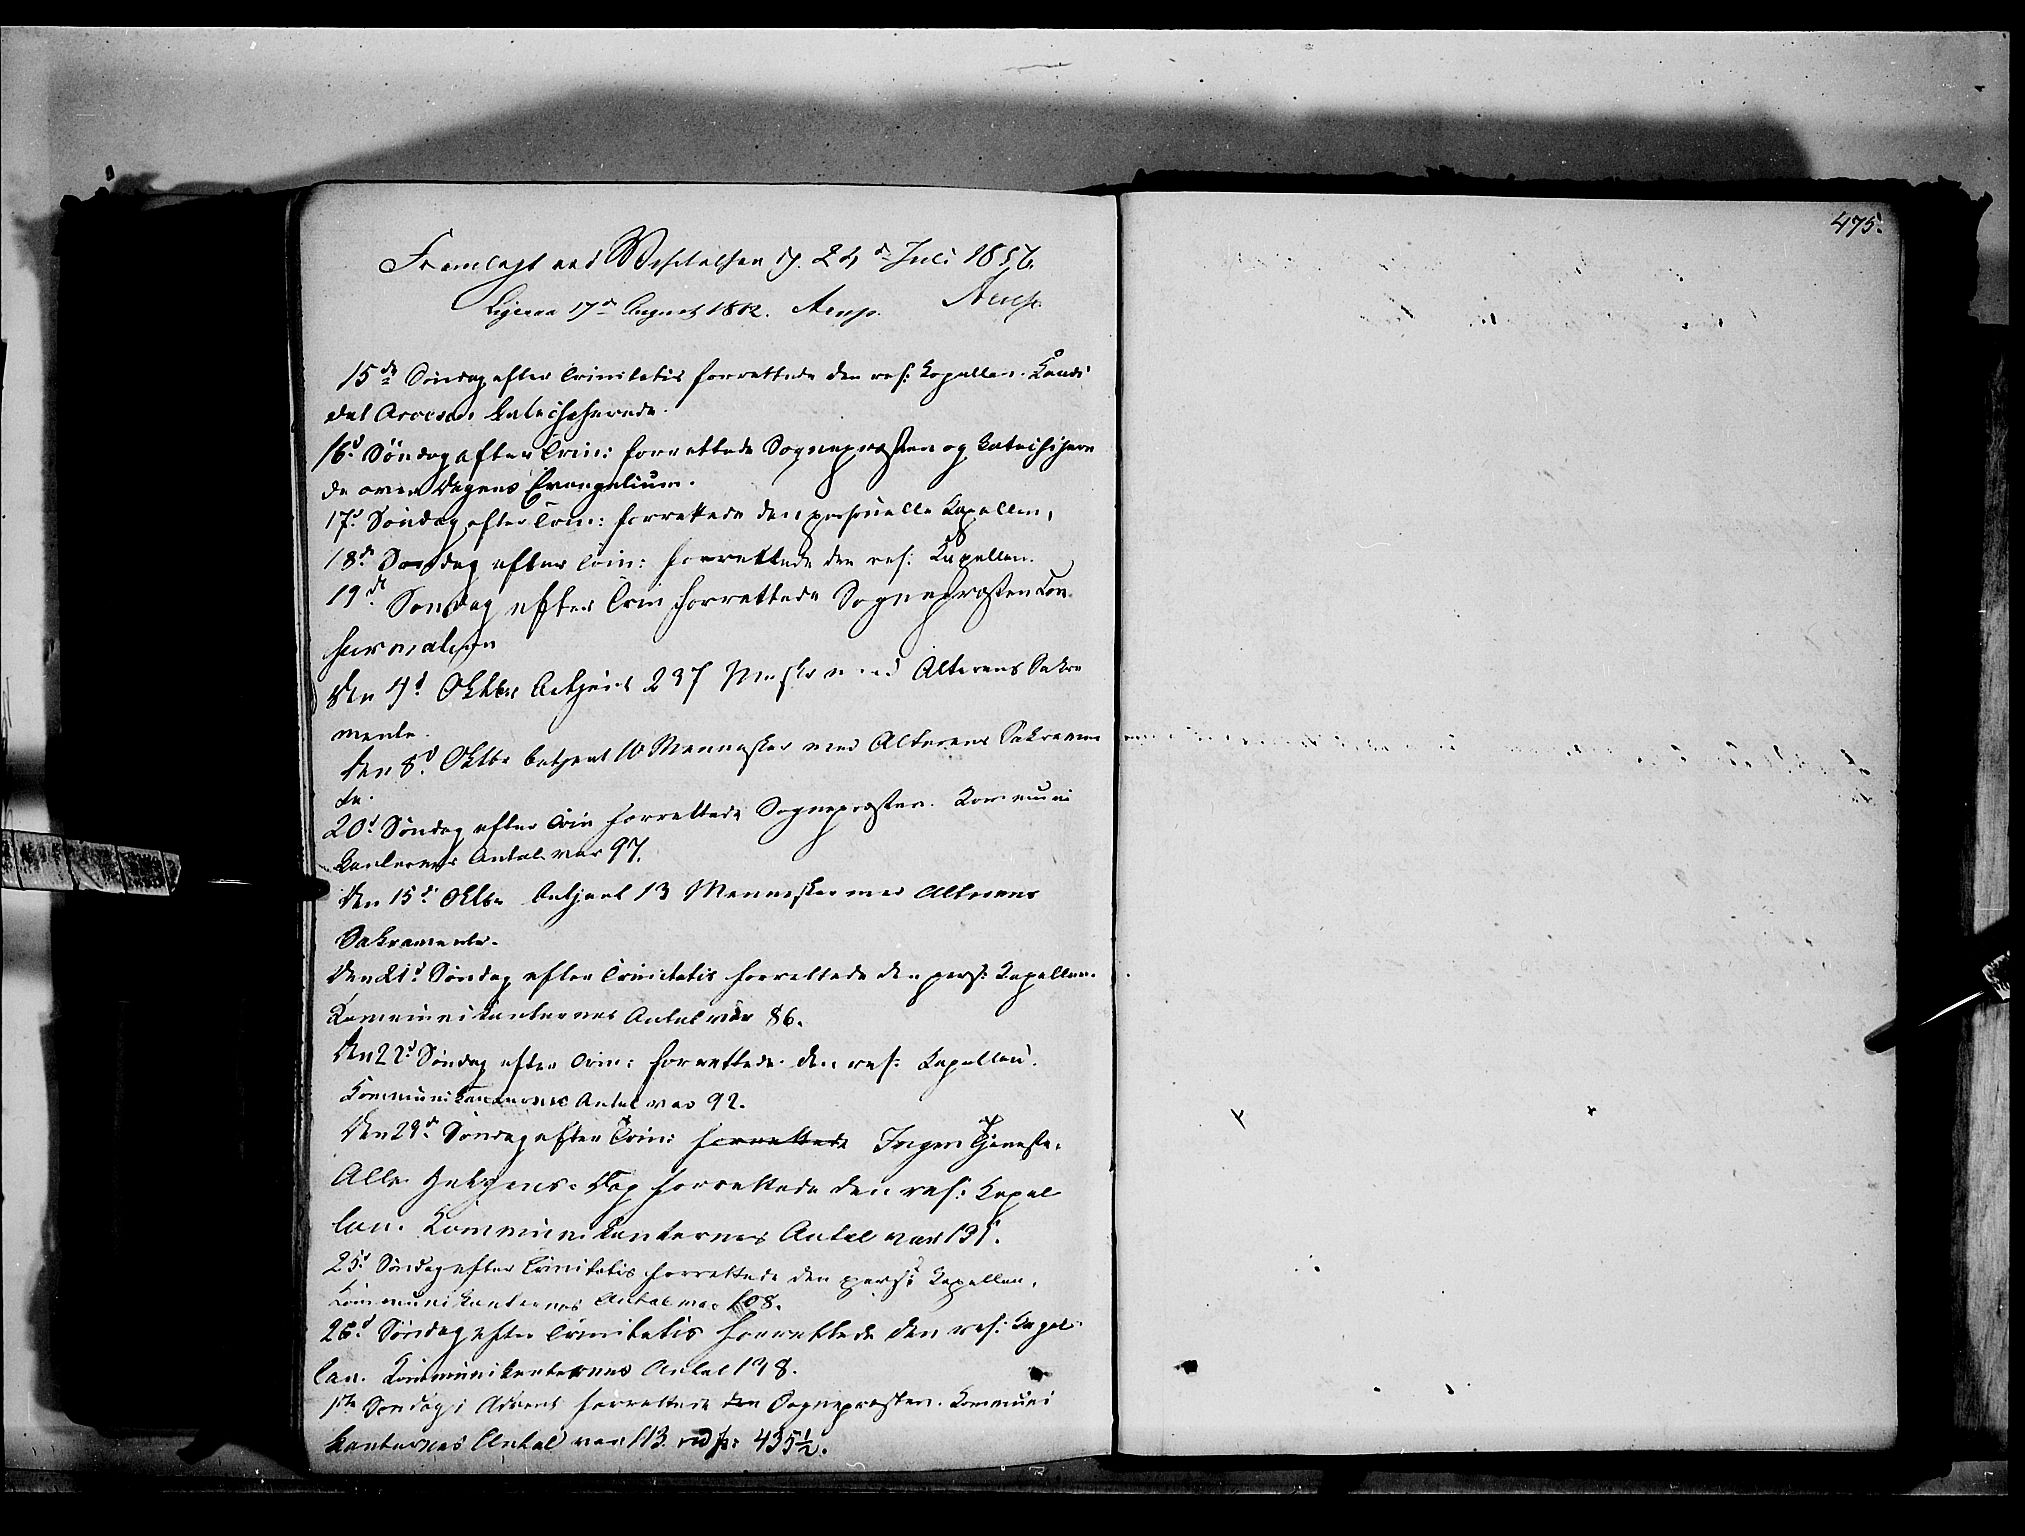 475.
Fremlagt ved Visitatsen d. 24de Juli 1856.
Arup.
Ligesaa 17de August 1862. Arup.
15de Søndag efter Trinitatis forrettede den res: Kapellan. Kandi
dat katechiserede.
16d Søndag efter Trin: forrettede Sognepræsten og katechisere
de over Dagens Evangelium.
17d Søndag efter Trin: forrettede den personelle Kapellan,
18de Søndag efter Trin: forrettede den res: Kapellan.
19de Søndag efter Trin forrettede Sognepræsten Con
firmation
Den 4d Oktbr betjent 237 Msker med Alterens Sakra
mente.
Den 8d Oktbr betjent 10 Mennesker med Alterens Sakramen
te.
20d Søndag efter Trin forrettede Sognepræsten. Kommuni
kanternes Antal var 97.
Den 15d Oktbr betjent 13 Mennesker med Alterens
Sakramente.
Den 21d Søndag efter Trinitatis forrettede den pers: Kapellan.
Kommunikanternes Antal var 86.
Den 22d Søndag efter Trin: forrettede den res: Kapellan.
Kommunikanternes Antal var 92.
Den 23d Søndag efter Trin: forrettede Ingen Tjeneste.
Alle Helgens Dag forrettede den res: Kapel
lan. Kommunikanternes Antal var 131.
25d Søndag efter Trinitatis forrettede den pers: Kapellan.
Kommunikanternes Antal var 108.
26d Søndag efter Trinitatis forrettede den res: Kapel
lan. Kommunikanternes Antal 138.
1ste Søndag i Advent forrettede den Sognepræsten. Kommuni
kanternes Antal var 113. vid p: 435½.